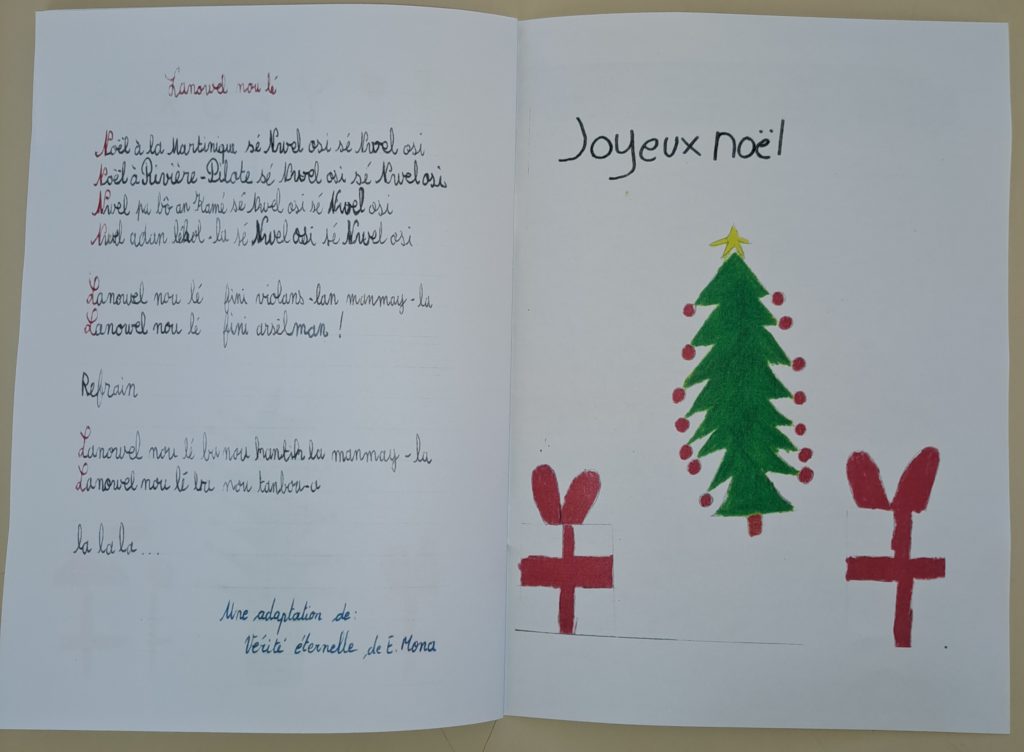 Lanowel nou lé
Noël à la Martinique sé Nwel osi sé Nwel osi
Noël à Rivière-Pilote sé Nwel osi sé Nwel osi
Nwel pa bô an Kamé sé Nwel osi sé Nwel osi
Nwel adan lékol-la sé Nwel osi sé Nwel osi
Lanowel nou lé fini violans-lan manmay-la
Lanowel nou lé fini arsèlman !
Refrain
Lanowel nou lé ba nou kantik la manmay-la
Lanowel nou lé ba nou tanbou-a
la la la ...
Une adaptation de:
Vérité éternelle de E. Mona
Joyeux noël